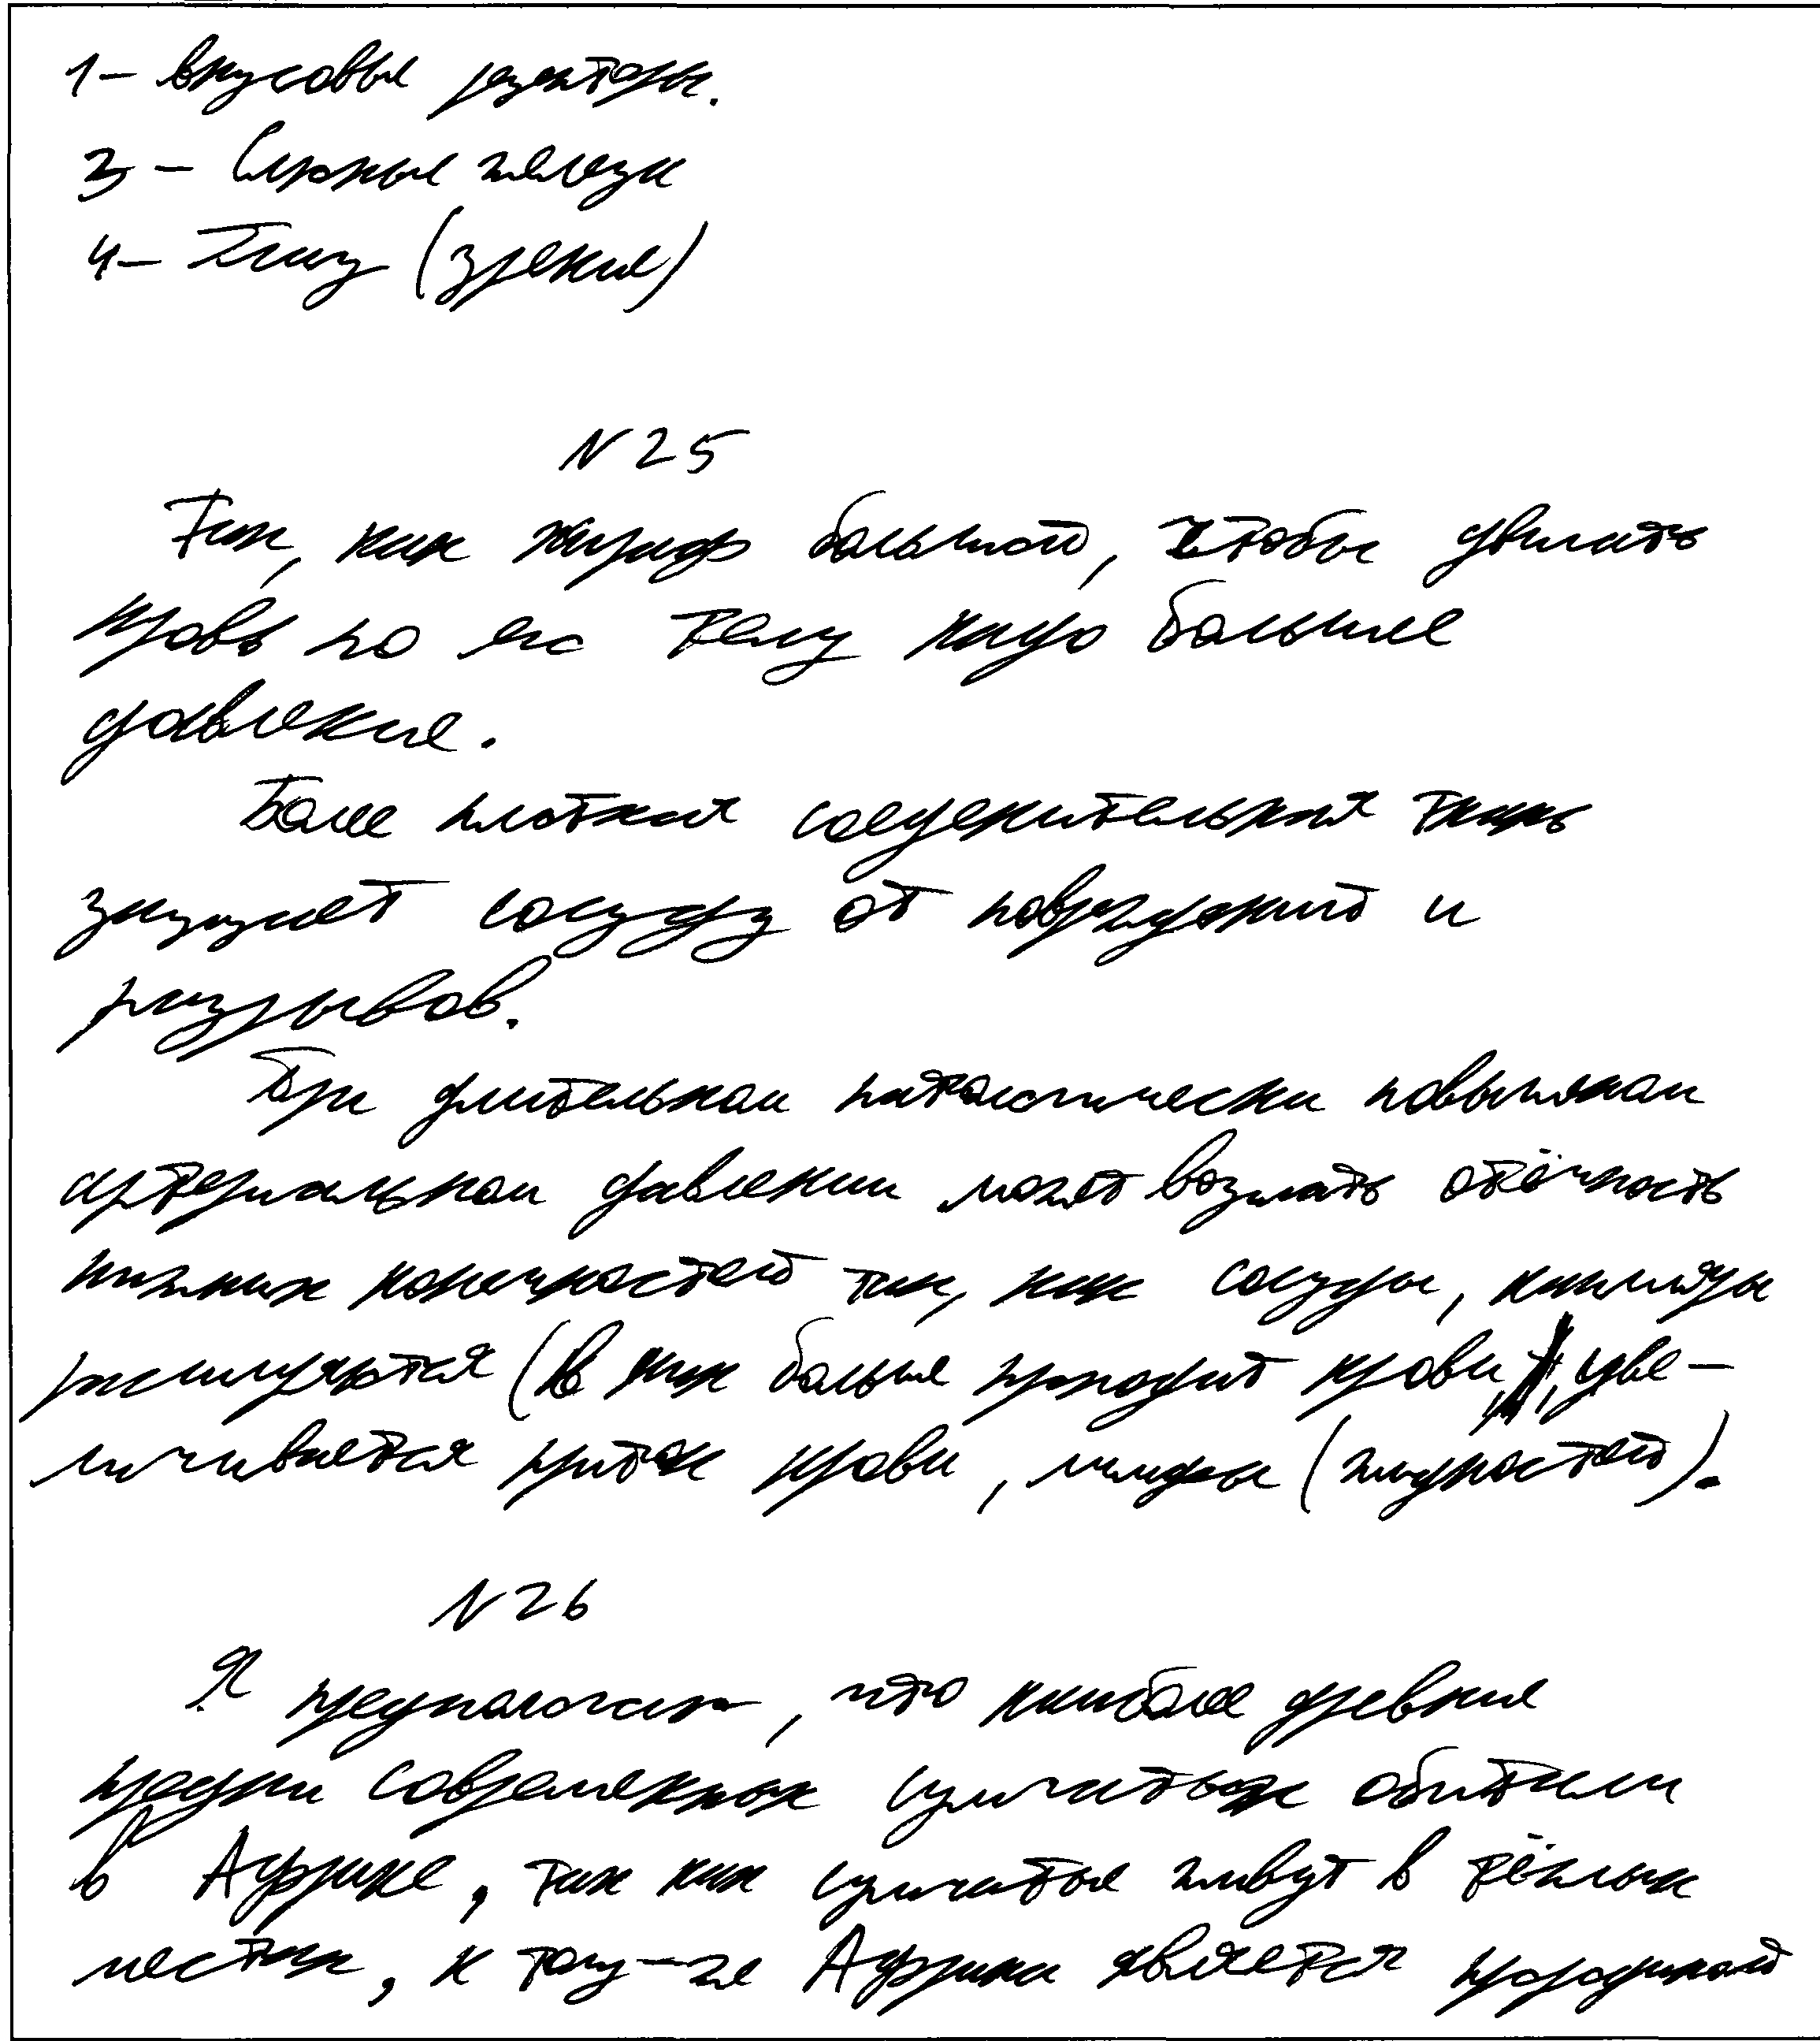 1 – вкусовые рецепторы.
3 – Слюнные железы
4 – Глаз (зрение)
N 25
Так, как жираф большой, чтобы двигать
кровь по его телу надо большее
давление.
Более плотная соеденительная ткань
защищает сосуды от повреждений и
разрывов.
При длительном патологически повышеном
артериальном давлении может возникать отёчность
нижних конечностей так, как сосуды, капиляры
расширяются (в них больше проходит крови, уве-
личивается приток крови, лимфы (жидкостей).
N 26
Я предполагаю, что наиболее древние
предки современных сумчатых обитали
в Африке, так как сумчатые живут в тёплых
местах, к тому-же Африка является прородиной